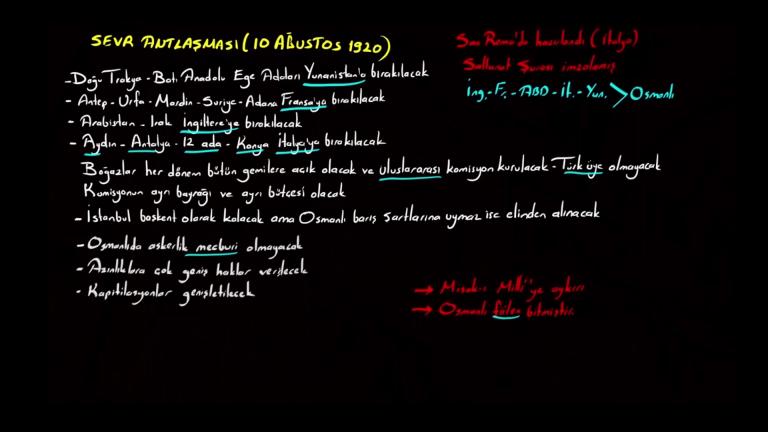 SEVR ANTLAŞMASI (10 AĞUSTOS 1920)
San Remo'da hazırlandı (İtalya)
Saltanat Şurası imzalamış
İng.-Fr.-ABD-İt.-Yun. > Osmanlı
-Doğu Trakya-Batı Anadolu Ege Adaları Yunanistan'a bırakılacak
- Antep-Urfa-Mardin-Suriye-Adana Fransa'ya bırakılacak
- Arabistan-Irak İngiltere'ye bırakılacak
- Aydın-Antalya-12 ada-Konya İtalya'ya bırakılacak
Boğazlar her dönem bütün gemilere açık olacak ve uluslararası komisyon kurulacak-Türk üye olmayacak
Komisyonun ayrı bayrağı ve ayrı bütçesi olacak
- İstanbul başkent olarak kalacak ama Osmanlı barış şartlarına uymaz ise elinden alınacak
- Osmanlıda askerlik mecburi olmayacak
- Azınlıklara çok geniş haklar verilecek
- Kapitilasyonlar genişletilecek
→ Misak-ı Milli'ye aykırı
→ Osmanlı fiilen bitmiştir.